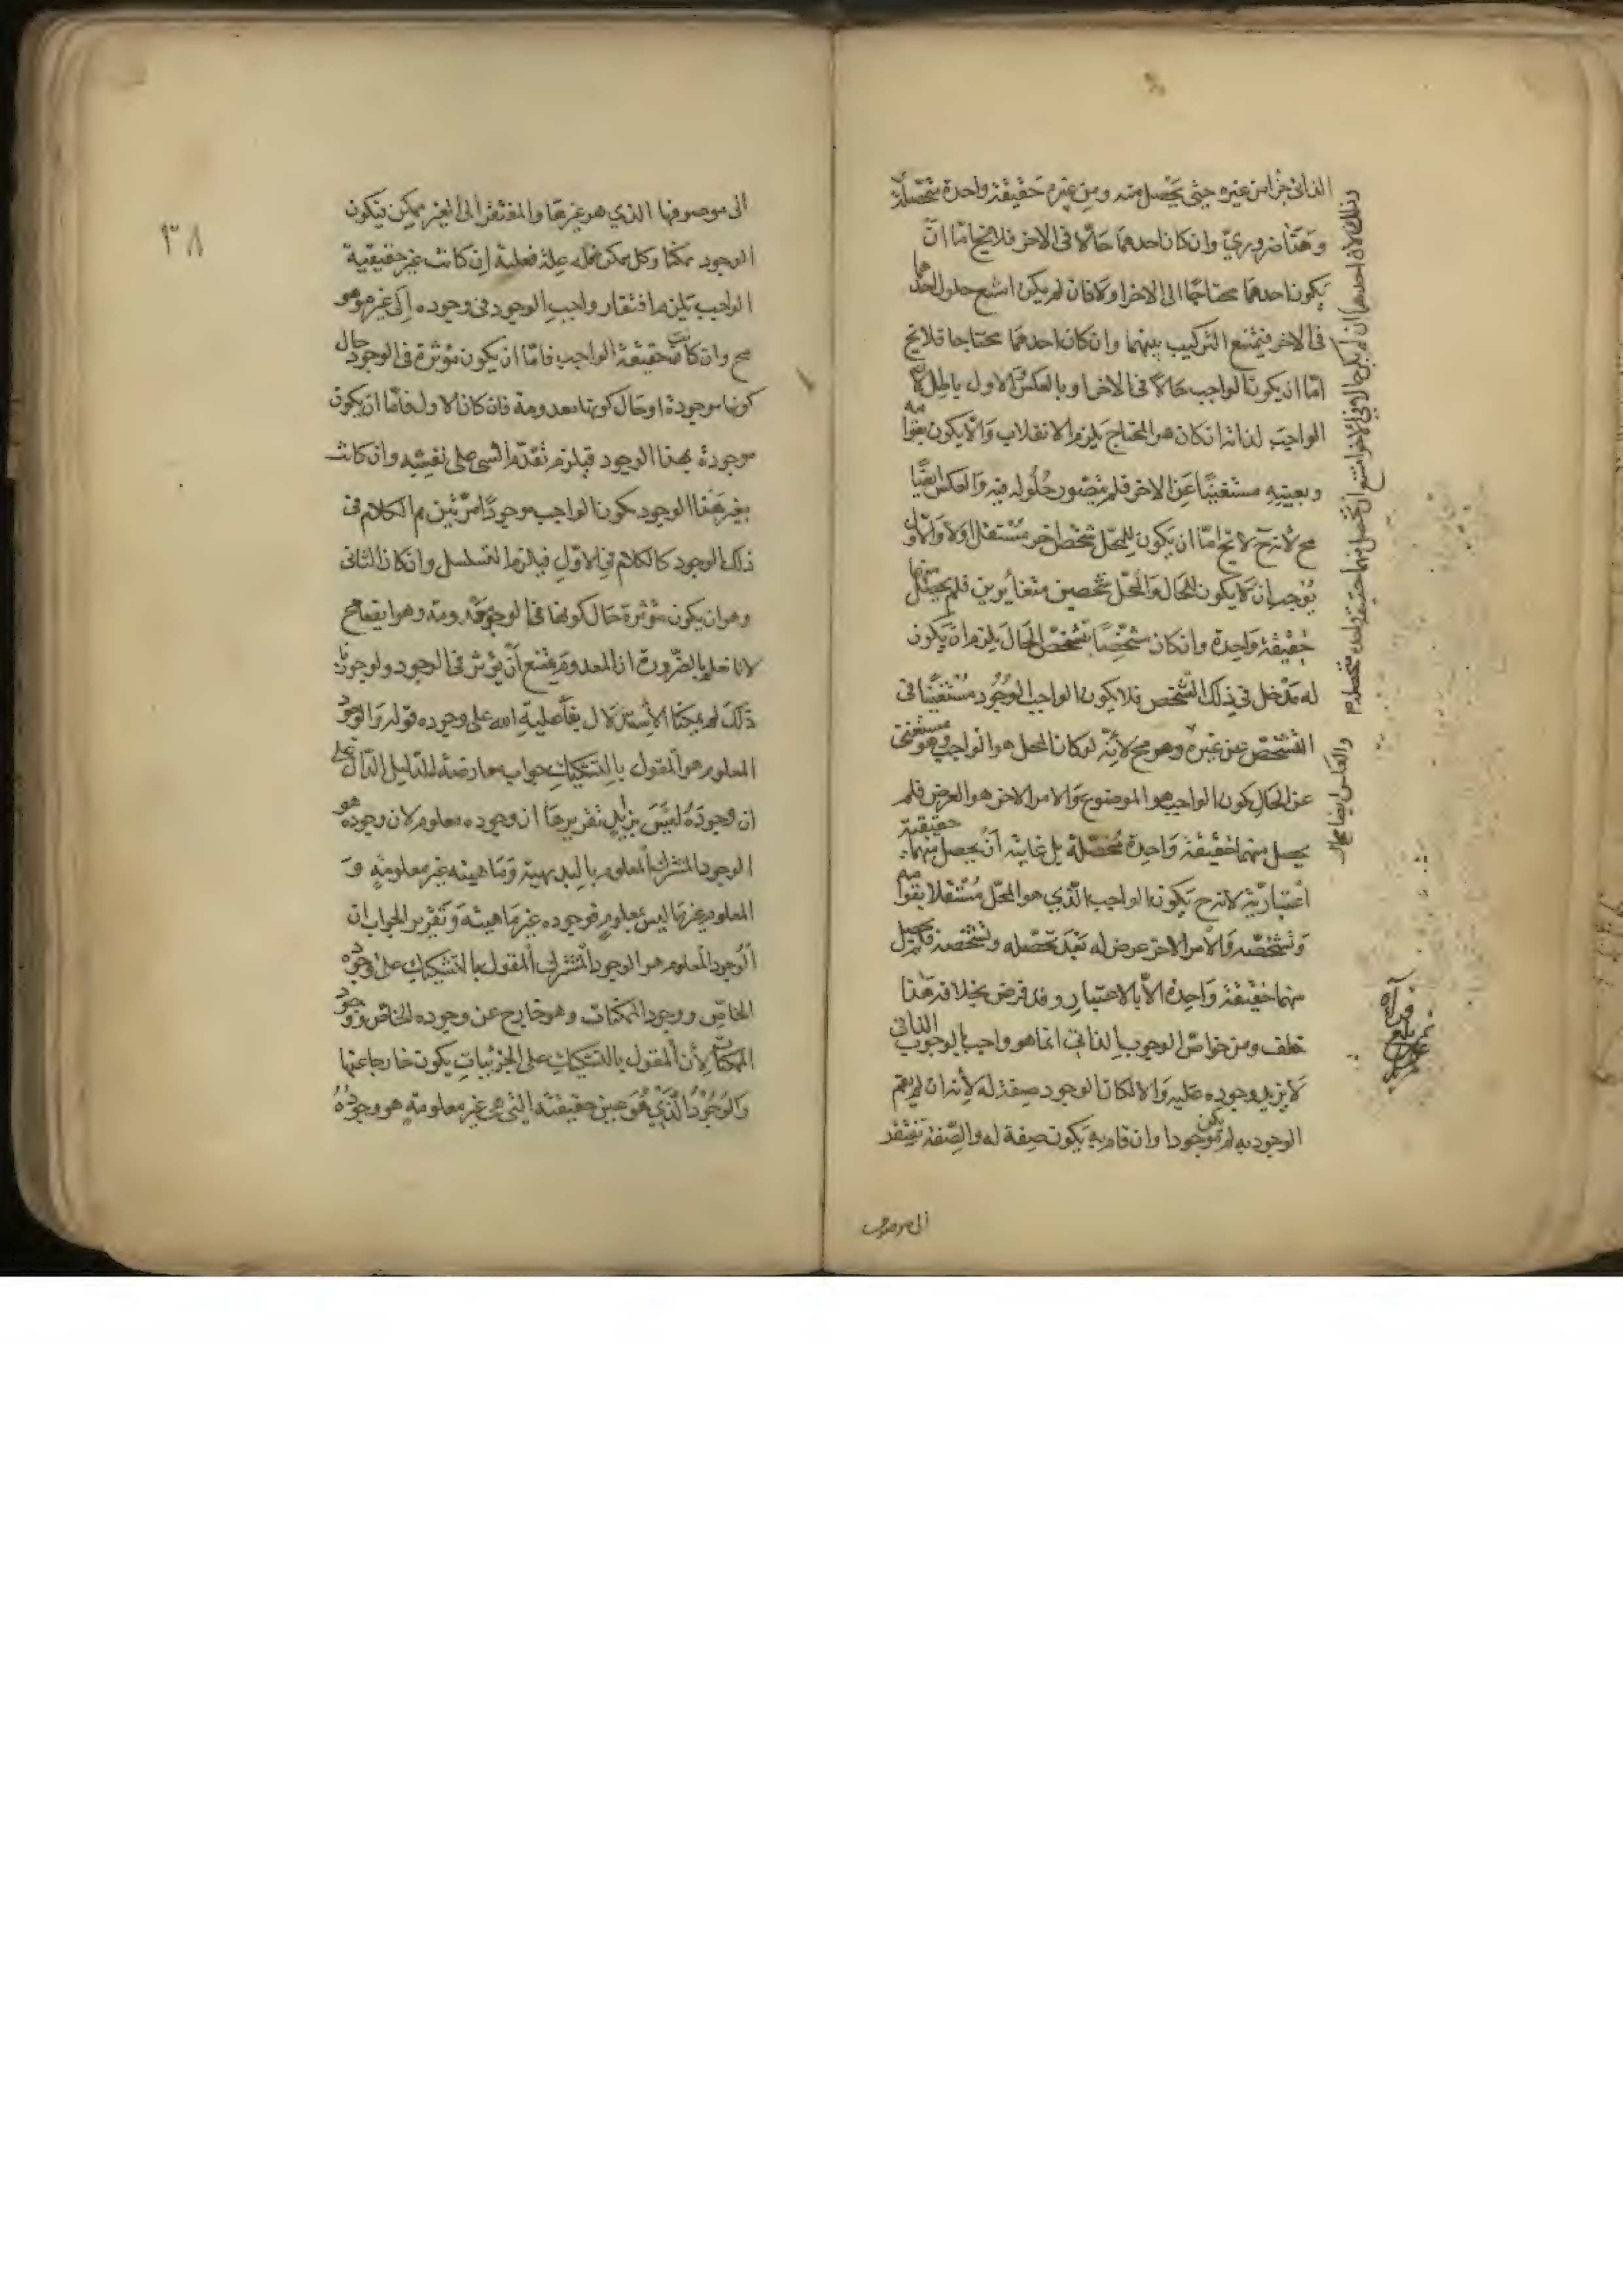 الذاتي جزأ من غيره حيثى يحصل منه ومن غيره حقيقة واحدة متحصلة
وهذا ضروري وان كان احدهما حالا في الاخر فلا يخ امّا ان
يكون احدهما محتاجا الى الاخر اولا فان لم يكن امتنع حلول احدهما
في الاخر فيمتنع التركيب بينهما وان كان احدهما محتاجا فلا يخ
امّا ان يكون الواجب حالا في الاخر او بالعكس والاول باطل لان
الواجب لذاته ان كان هو المحتاج يلزم الانقلاب والا يكون بقوامه
وبعينه مستغنيا عن الاخر فلم يتصور حلوله فيه والعكس ايضا
مح لانه ح لا يخ امّا ان يكون للمحلّ شخص اخر مستقل اولا والاول
يوجب ان لا يكون للحال والمحلّ شخصين متغايرين فلم يحصل منهما
حقيقة واحدة وان كان متشخصا بتشخص الحال يلزم ان يكون
له مدخل في ذلك التشخص فلا يكون الواجب الوجود مستغنيا في
التشخص عن غيره وهو مح لانه لو كان المحل هو الواجب وهو مستغنى
عن الحال يكون الواجب هو الموضوع والامر الاخر هو العرض فلم
يحصل منهما حقيقة واحدة متحصلة بل غايته ان يحصل منهما حقيقة
اعتبارية لانه ح يكون الواجب الذي هو المحلّ مستقلا بقوامه
وتشخصه والامر الاخر عرض له بعد تحصله وتشخصه فلم يحصل
منهما حقيقة واحدة الا بالاعتبار وقد فرض بخلافه هذا
خلف ومن خواصّ الوجوب بالذاتي انما هو واجب بالوجوب الذاتي
لا يزيد وجوده عليه والا لكان الوجود صفة له لانه ان لم يقم
الوجود به لم يكن موجودا وان قام به يكون صفة له والصفة تفتقر
الى موصوف
وذلك لان احدهما ان لم يكن حالا في الاخر امتنع ان يحصل منهما حقيقة واحدة متحصلة
والثاني ايضا محال
٣٨
الى موصوفها الذي هو غيرها والمفتقر الى الغير ممكن فيكون
الوجود ممكنا وكل ممكن فله علة فعلية ان كانت غير حقيقية
الواجب يلزم افتقار واجب الوجود في وجوده الى غيره وهو
مح وان كانت حقيقة الواجب فامّا ان يكون مؤثرة في الوجود حال
كونها موجودة او حال كونها معدومة فان كان الاول فامّا ان يكون
موجودة بهذا الوجود فيلزم تقدّم الشى على نفسه وان كانت
بغير هذا الوجود يكون الواجب موجودا مرتين ثم الكلام في
ذلك الوجود كالكلام في الاول فيلزم التسلسل وان كان الثاني
وهو ان يكون مؤثرة حال كونها في الوجود معدومة وهو ايضا مح
لانا نعلم بالضرورة ان المعدوم يمتنع ان يؤثر في الوجود ولو جوزنا
ذلك لم يمكنا الاستدلال بفاعلية الله على وجوده قوله والوجود
المعلوم هو المقول بالتشكيك جواب معارضة للدليل الدّال على
ان وجوده ليس بزايد تقريرها ان وجوده معلوم لان وجوده هو
الوجود المشترك المعلوم بالبديهية وماهيته غير معلومة و
المعلوم غير ما ليس بمعلوم فوجوده غير ماهيته وتقرير الجواب ان
الوجود المعلوم هو الوجود المشترك المقول بالتشكيك على وجوده
الخاصّ ووجود الممكنات وهو خارج عن وجوده الخاصّ ووجود
الممكنات لان المقول بالتشكيك على الجزئيات يكون خارجا عنها
والوجود الذي هو عين حقيقته التي هي غير معلومة هو وجوده